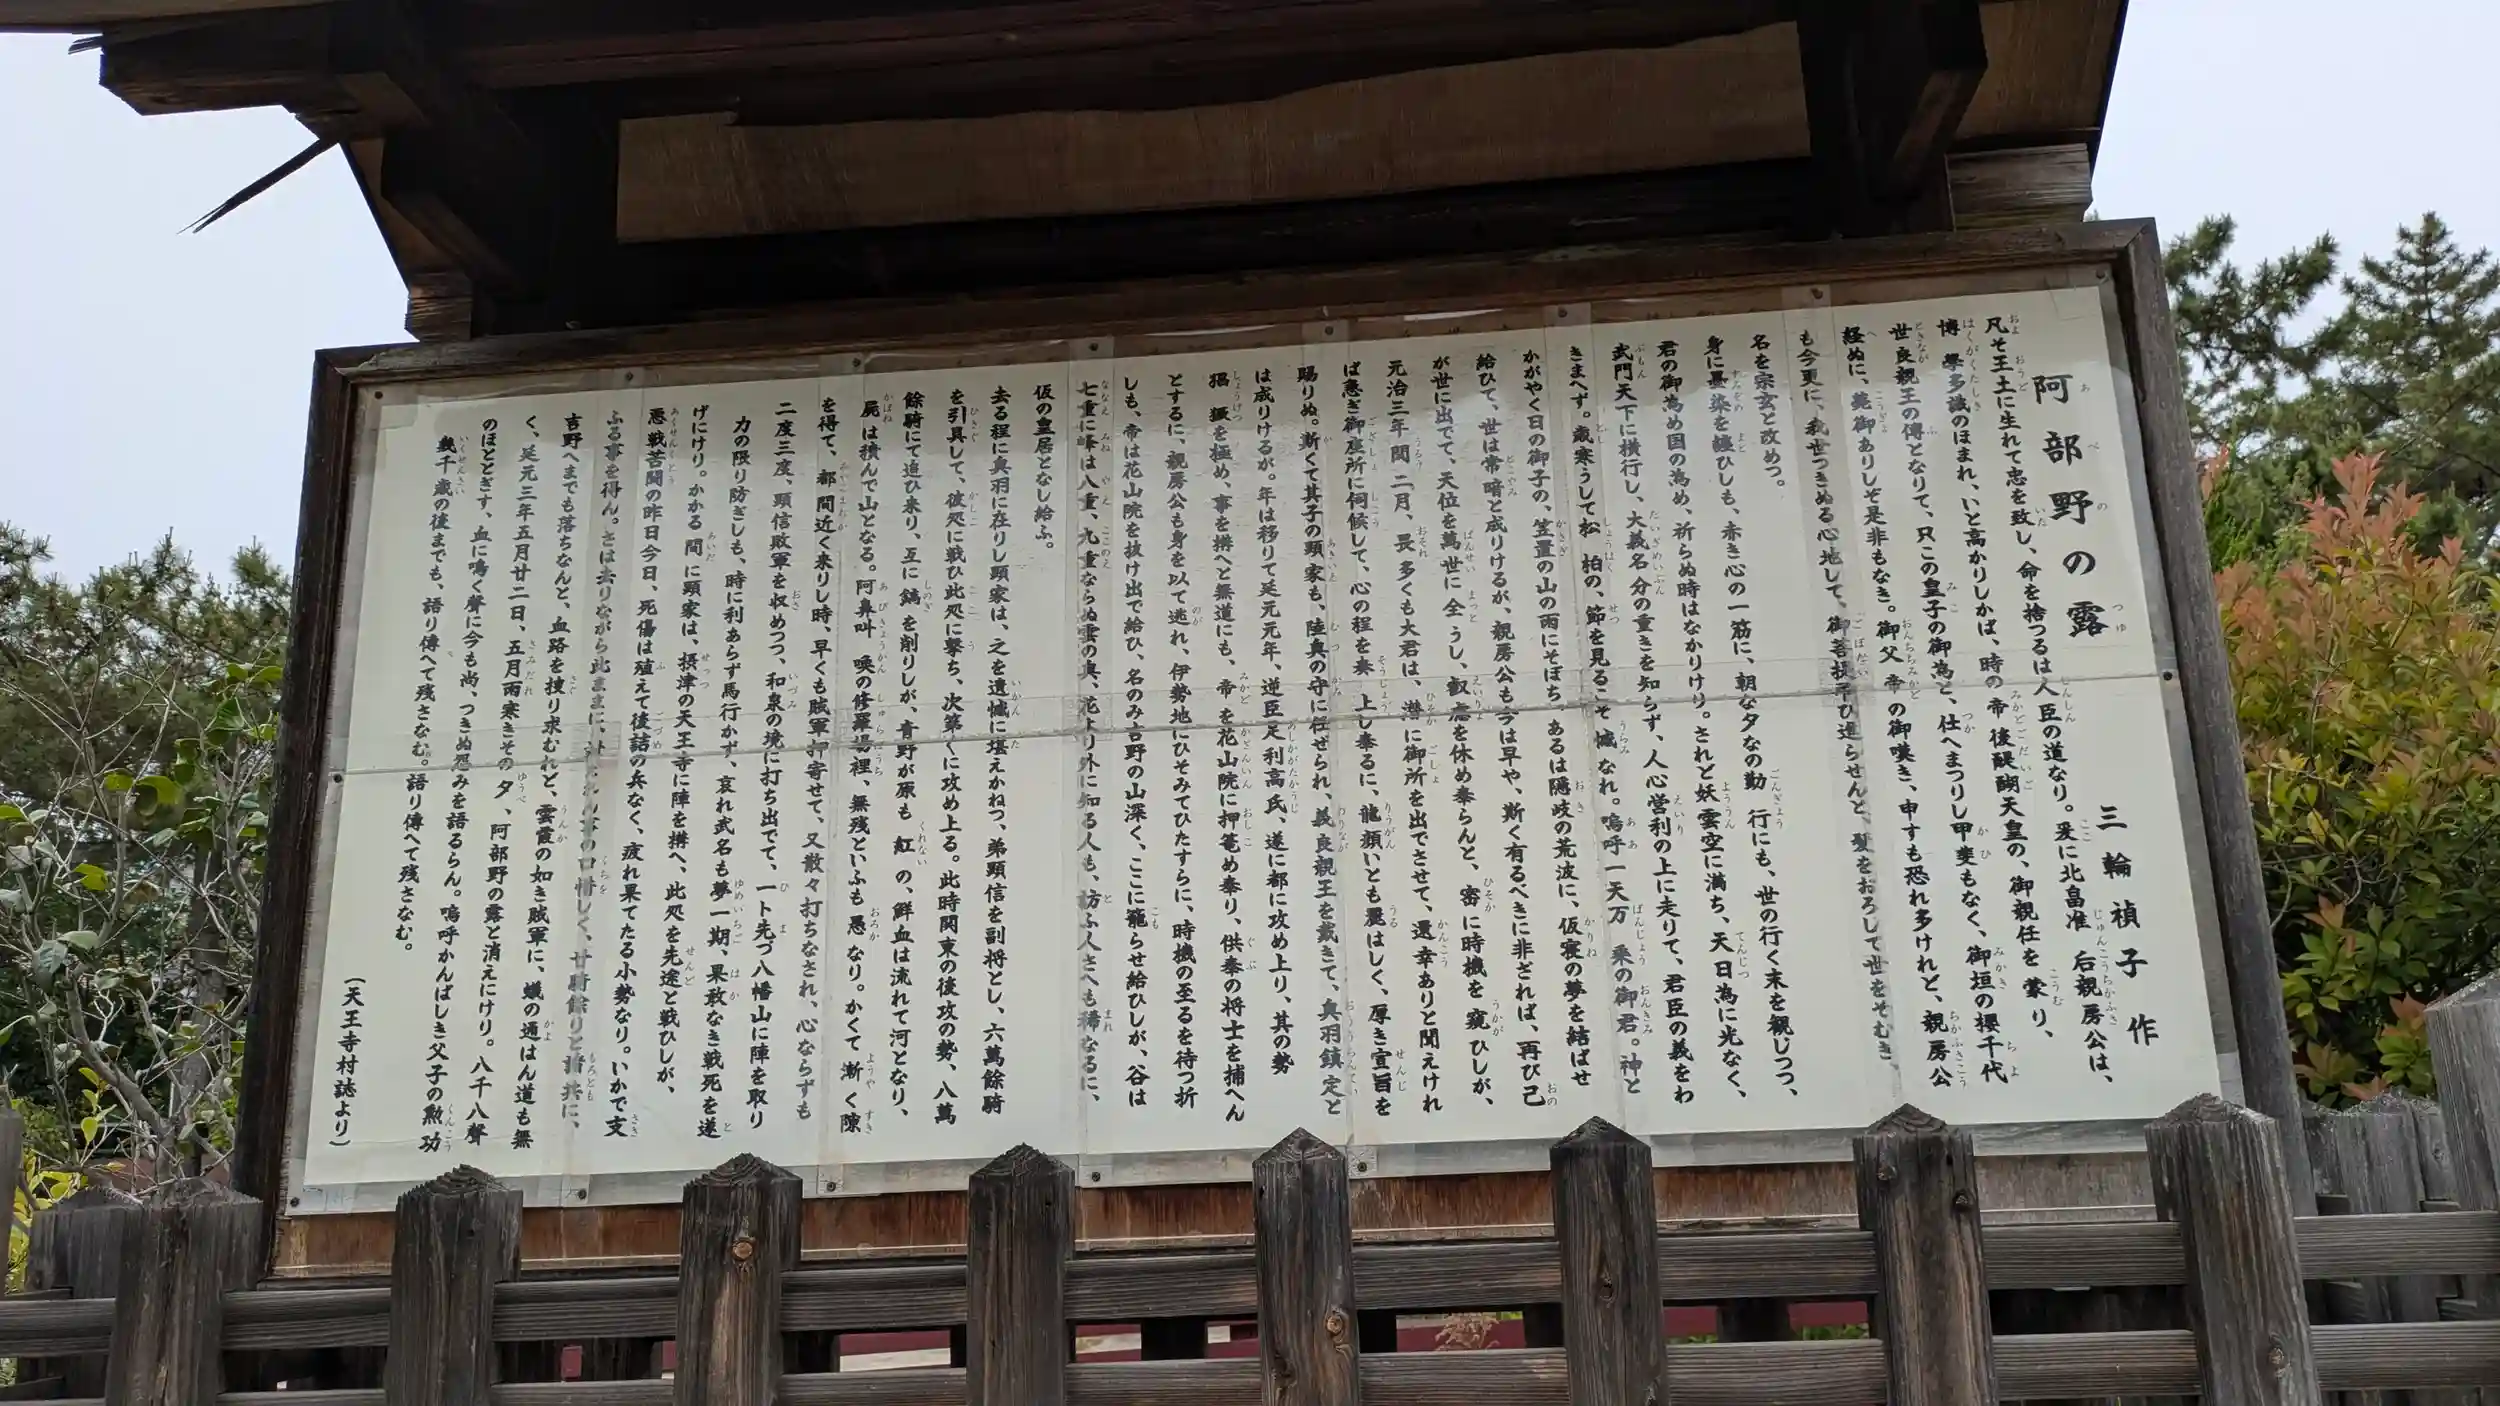 阿部野の露
三輪禎子作
凡そ王土に生れて忠を致し、命を捨つるは人臣の道なり。爰に北畠准后親房公は、
博學多識のほまれ、いと高かりしかば、時の帝後醍醐天皇の、御親任を蒙り、
世良親王の傳となりて、只この皇子の御為と、仕へまつりし甲斐もなく、御垣の櫻千代
経ぬに、薨御ありしぞ是非もなき。御父帝の御嘆き、申すも恐れ多けれど、親房公
も今更に、我世つきぬる心地して、御菩提弔ひ進らせんと、髪をおろして世をそむき、
名を宗玄と改めつ。
身に墨染を纏ひしも、赤き心の一筋に、朝な夕なの勤行にも、世の行く末を観じつつ、
君の御為め国の為め、祈らぬ時はなかりけり。されど妖雲空に満ち、天日為に光なく、
武門天下に横行し、大義名分の重きを知らず、人心営利の上に走りて、君臣の義をわ
きまへず。歳寒うして松柏の、節を見るこそ憾なれ。嗚呼一天万乗の御君。神と
かがやく日の御子の、笠置の山の雨にそぼち、あるは隠岐の荒波に、仮寝の夢を結ばせ
給ひて、世は常暗と成りけるが、親房公も今は早や、斯く有るべきに非ざれば、再び己
が世に出でて、天位を萬世に全うし、叡慮を休め奉らんと、密に時機を窺ひしが、
元治三年閏二月、畏多くも大君は、潜に御所を出でさせて、還幸ありと聞えけれ
ば急ぎ御座所に伺候して、心の程を奏上し奉るに、龍顔いとも麗はしく、厚き宣旨を
賜りぬ。斯くて其子の顕家も、陸奥の守に任ぜられ、義良親王を戴きて、奥羽鎮定と
は成りけるが。年は移りて延元元年、逆臣足利高氏、遂に都に攻め上り、其の勢
猖獗を極め、事を構へと無道にも、帝を花山院に押篭め奉り、供奉の将士を捕へん
とするに、親房公も身を以て逃れ、伊勢地にひそみてひたすらに、時機の至るを待つ折
しも、帝は花山院を抜け出で給ひ、名のみ吉野の山深く、ここに籠らせ給ひしが、谷は
七重に峰は八重、九重ならぬ雲の奥、花より外に知る人も、訪ふ人さへも稀なるに、
仮の皇居となし給ふ。
去る程に奥羽に在りし顕家は、之を遺憾に堪えかねつ、弟顕信を副将とし、六萬餘騎
を引具して、彼処に戦ひ此処に撃ち、次第くに攻め上る。此時関東の後攻の勢、八萬
餘騎にて追ひ来り、互に鎬を削りしが、青野が原も紅の、鮮血は流れて河となり、
屍は積んで山となる。阿鼻叫喚の修羅場裡、無残といふも愚なり。かくて漸く隙
を得て、都間近く来りし時、早くも賊軍押寄せて、又散々打ちなされ、心ならずも
二度三度、顕信敗軍を収めつつ、和泉の境に打ち出でて、一ト先づ八幡山に陣を取り
力の限り防ぎしも、時に利あらず馬行かず、哀れ武名も夢一期、果敢なき戦死を遂
げにけり。かかる間に顕家は、摂津の天王寺に陣を構へ、此処を先途と戦ひしが、
悪戦苦闘の昨日今日、死傷は殖えて後詰の兵なく、疲れ果てたる小勢なり。いかで支
ふる事を得ん。さは去りながら此ままに、の口惜しく、廿騎餘りと諸共に、
吉野へまでも落ちなんと、血路を捜り求むれど、雲霞の如き賊軍に、蟻の通はん道も無
く、延元三年五月廿二日、五月雨寒きその夕、阿部野の露と消えにけり。八千八聲
のほととぎす、血に鳴く聲に今も尚、つきぬ怨みを語るらん。嗚呼かんばしき父子の勲功
幾千歳の後までも、語り傳へて残さなむ。語り傳へて残さなむ。
(天王寺村誌より)